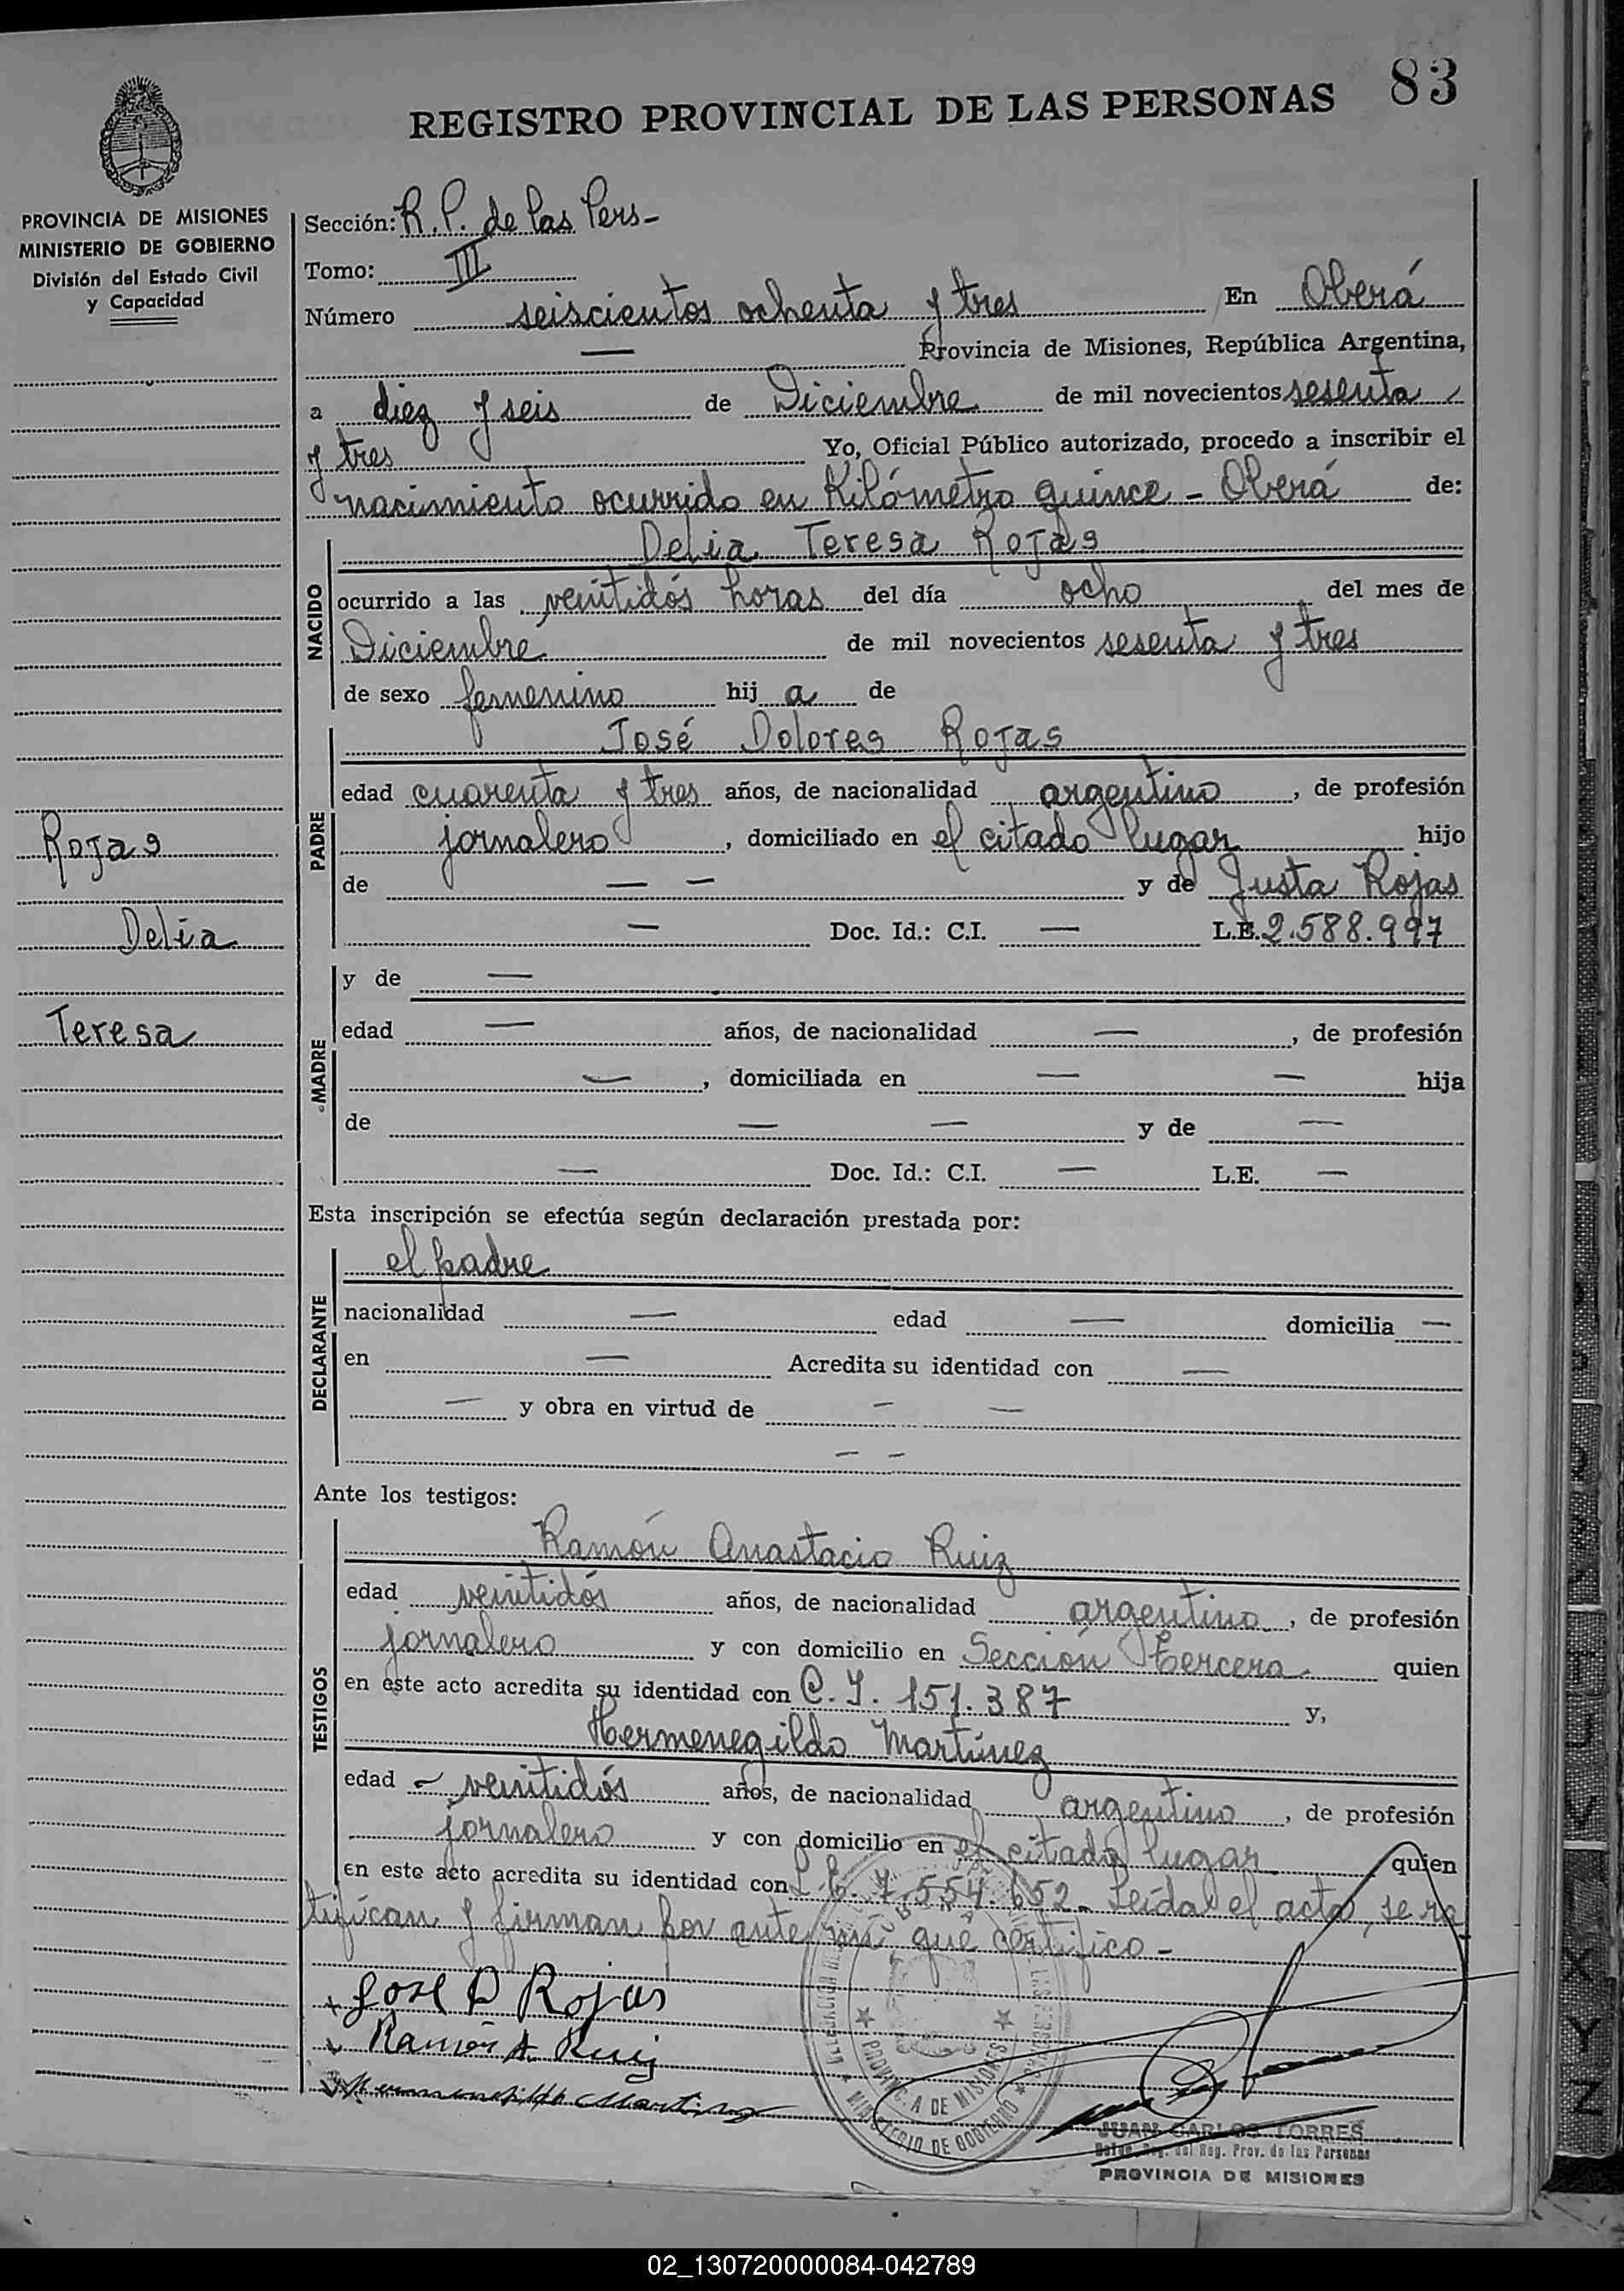 83
REGISTRO PROVINCIAL DE LAS PERSONAS
PROVINCIA DE MISIONES
MINISTERIO DE GOBIERNO
División del Estado Civil
y Capacidad
Sección: R. P. de las Pers-
Tomo: III
Número seiscientos ochenta y tres En Oberá
— Provincia de Misiones, República Argentina,
a diez y seis de Diciembre de mil novecientos sesenta
y tres Yo, Oficial Público autorizado, procedo a inscribir el
nacimiento ocurrido en Kilómetro quince - Oberá de:
NACIDO
Delia Teresa Rojas
ocurrido a las veintidós horas del día ocho del mes de
Diciembre de mil novecientos sesenta y tres
de sexo femenino hij a de
PADRE
José Dolores Rojas
edad cuarenta y tres años, de nacionalidad argentino, de profesión
jornalero, domiciliado en el citado lugar hijo
de — — y de Justa Rojas
— Doc. Id.: C.I. — L.E. 2.588.997
Rojas
Delia
Teresa
MADRE
y de —
edad — años, de nacionalidad —, de profesión
—, domiciliada en — — hija
de — — y de —
— Doc. Id.: C.I. — L.E. —
Esta inscripción se efectúa según declaración prestada por:
DECLARANTE
el padre
nacionalidad — edad — domicilia —
en — Acredita su identidad con —
— y obra en virtud de — —
— —
Ante los testigos:
TESTIGOS
Ramón Anastacio Ruiz
edad veintidós años, de nacionalidad argentino, de profesión
jornalero y con domicilio en Sección Tercera quien
en este acto acredita su identidad con C. I. 151.387 y,
Hermenegildo Martínez
edad - veintidós años, de nacionalidad argentino, de profesión
jornalero y con domicilio en el citado lugar quien
en este acto acredita su identidad con L. E. 7.554.652. Leída el acta, se ra
tifican y firman por ante mí, que certifico -
Jose D Rojas
Ramón A. Ruiz
Hermenegildo Martinez
PROVINCIA DE MISIONES
MINISTERIO DE GOBIERNO
JUAN CARLOS TORRES
Reg. del Reg. Prov. de las Personas
PROVINCIA DE MISIONES
02_130720000084-042789